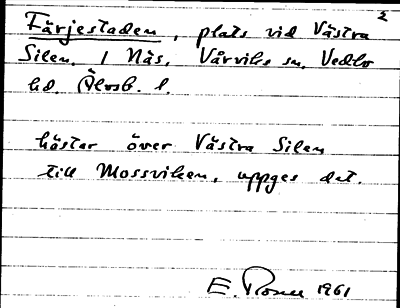 2
Färjestaden, plats vid Västra
Silen. / Näs, Vårviks sn. Vedbo
hd. Älvsb. l.
hästar över Västra Silen
till Mossviken, uppges det.
E. 1961